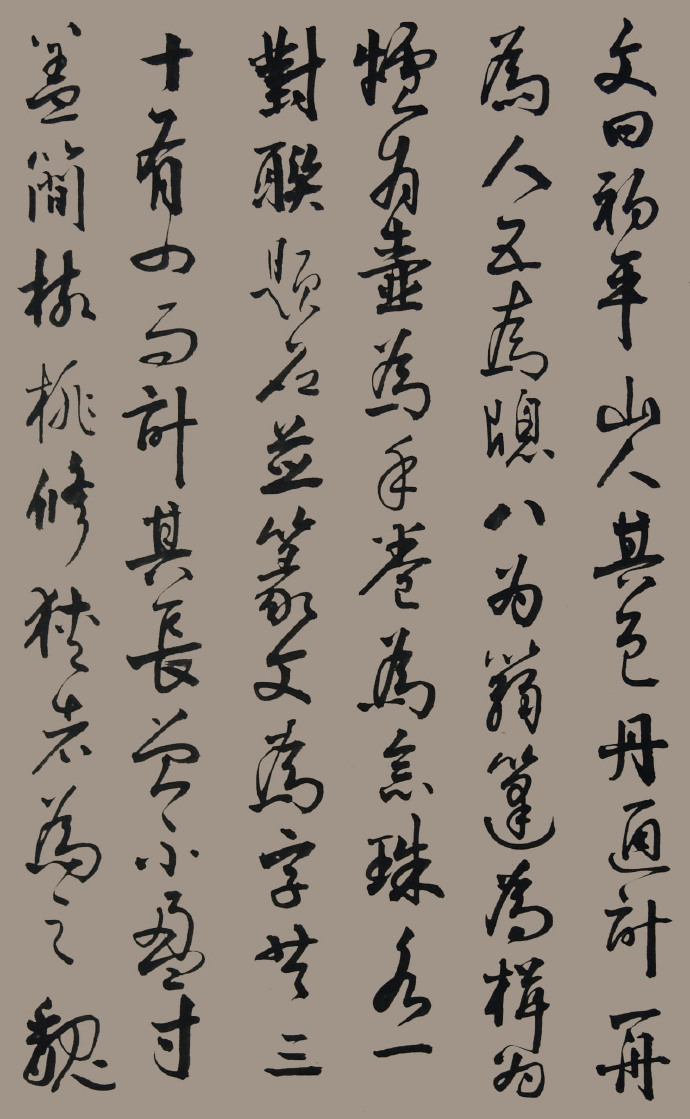 文曰初平山人其色丹通計一舟
為人五為牕八为篛篷為楫为
爐为壺為手卷為念珠各一
對聯題名並篆文為字共三
十有四而計其長曾不盈寸
蓋簡桃核修狹者為之魏